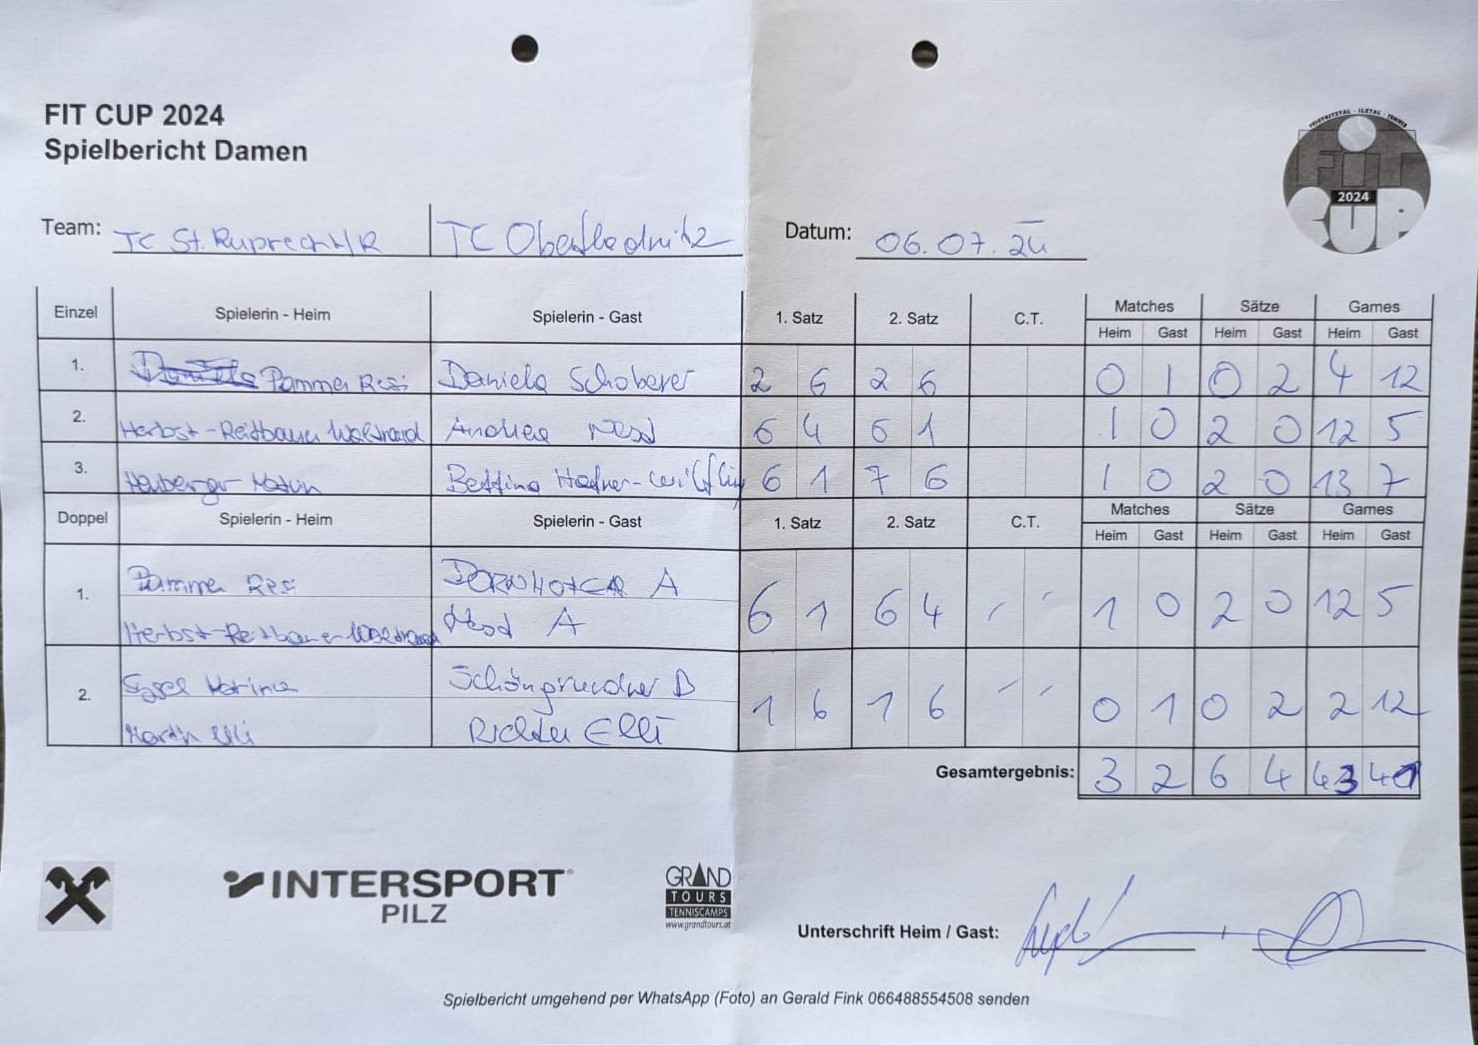 FIT CUP 2024
Spielbericht Damen
FEISTRITZTAL - ILZTAL - TENNIS
FIT
2024
CUP
Team: TC St. Ruprecht/R TC Oberfladnitz Datum: 06.07.24
Einzel Spielerin - Heim Spielerin - Gast 1. Satz 2. Satz C.T. Matches Sätze Games
Heim Gast Heim Gast Heim Gast
1. Pammer Resi Daniela Schoberer 2 6 2 6 0 1 0 2 4 12
2. Herbst-Reitbauer Waltraud Andrea 6 4 6 1 1 0 2 0 12 5
3. Bettina Hafner-Wilfling 6 1 7 6 1 0 2 0 13 7
Doppel Spielerin - Heim Spielerin - Gast 1. Satz 2. Satz C.T. Matches Sätze Games
Heim Gast Heim Gast Heim Gast
Pammer Resi DORNHOFER A
1. 6 1 6 4 1 0 2 0 12 5
Herbst-Reitbauer Waltraud A
Marina Schöngrundner B
2. 1 6 1 6 0 1 0 2 2 12
Richter Elli
Gesamtergebnis: 3 2 6 4 43 41
INTERSPORT
PILZ
GRAND
TOURS
TENNISCAMPS
www.grandtours.at
Unterschrift Heim / Gast:
Spielbericht umgehend per WhatsApp (Foto) an Gerald Fink 066488554508 senden